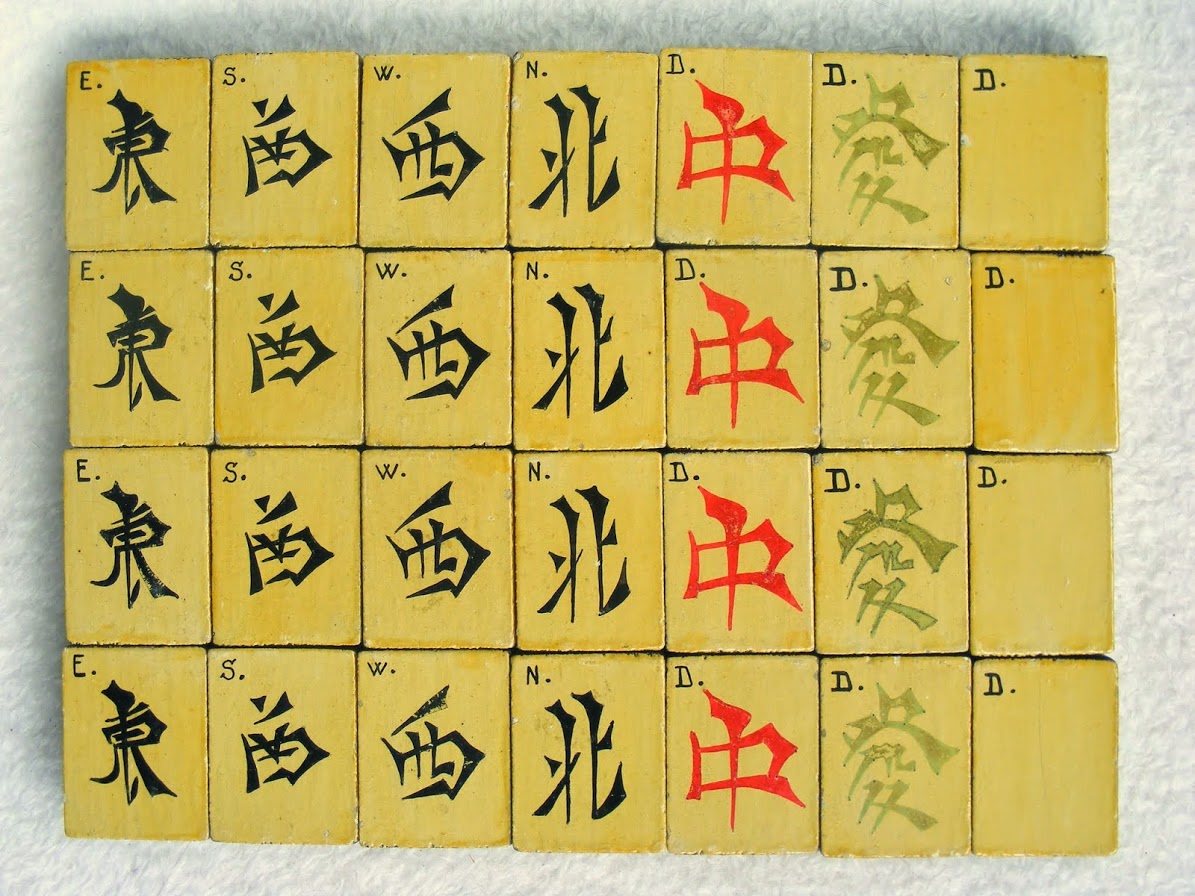 E. S. W. N. D. D. D.
東 南 西 北 中 發
E. S. W. N. D. D. D.
東 南 西 北 中 發
E. S. W. N. D. D. D.
東 南 西 北 中 發
E. S. W. N. D. D. D.
東 南 西 北 中 發